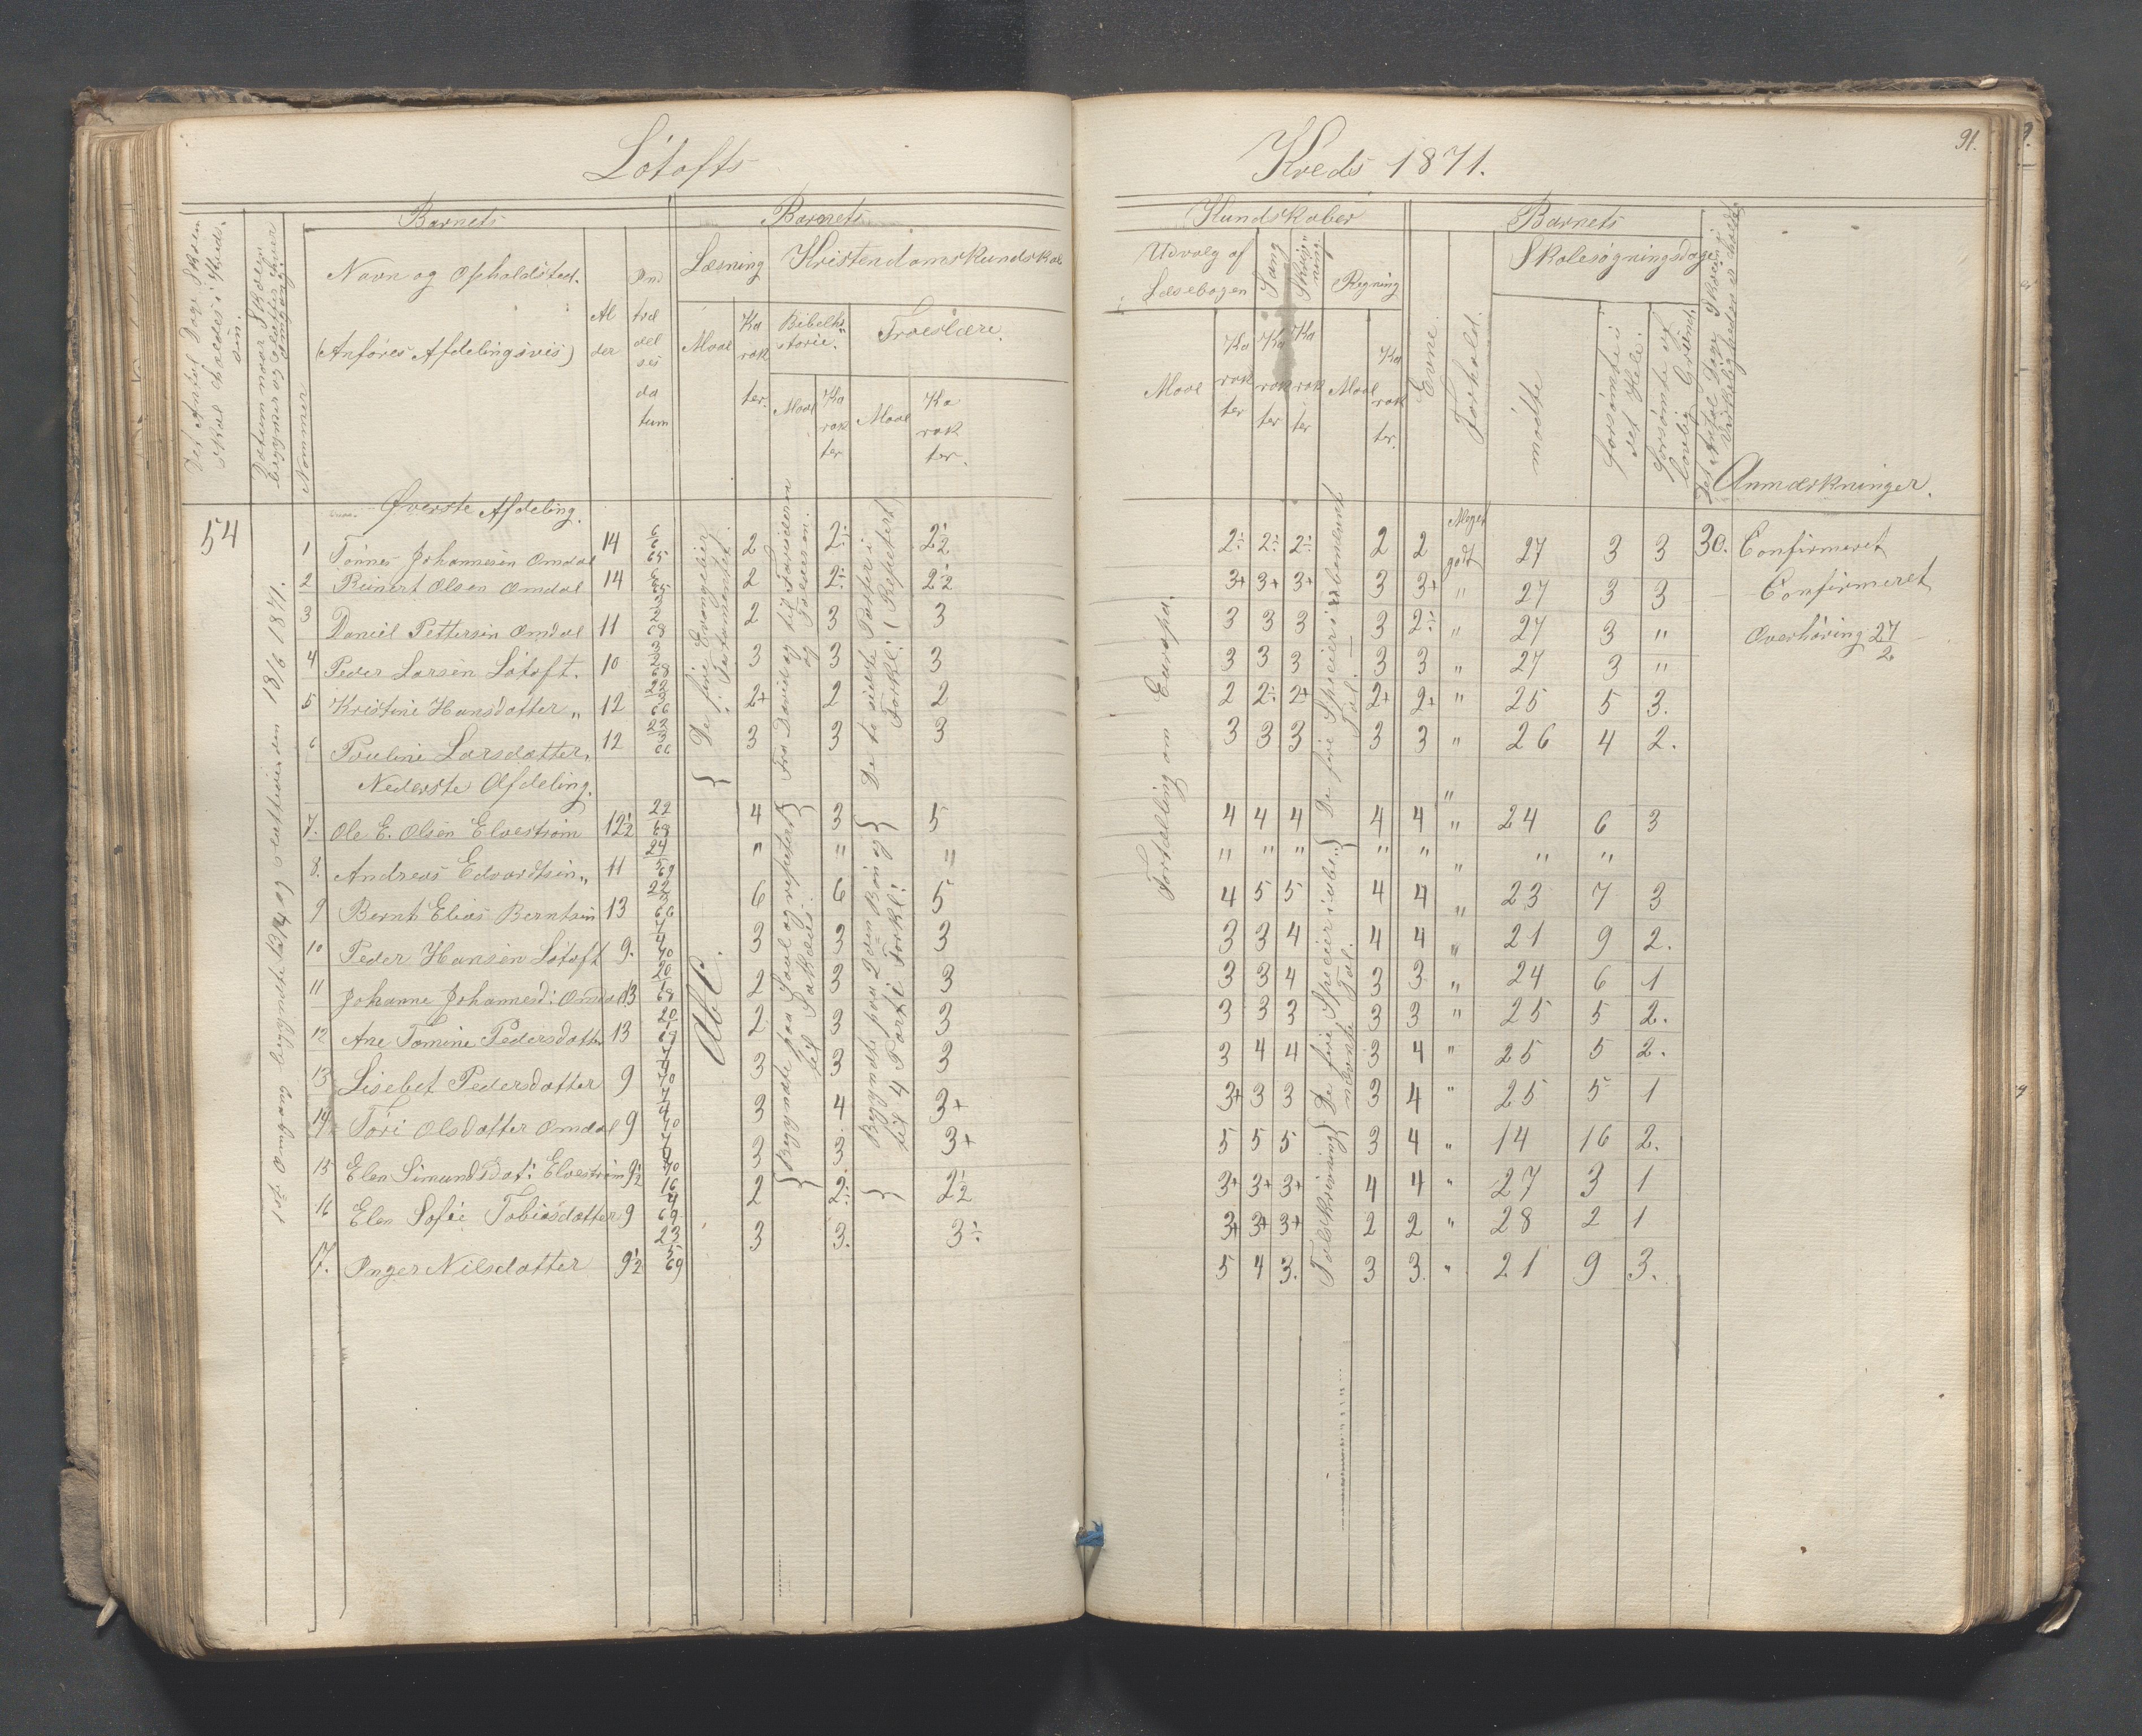 Løtofts
Kreds 1871.
91.
Barnets
Barnets
Navn og Opholdsted.
(Anføres Afdelingsvis)
Nummer
Al
der
Ind
træ
del
ses
da
tum
Læsning
Maal
Ka
rak
ter.
Kristendomskundskab
Bibelhi-
storie.
Maal
Ka
rak
ter
Troeslære.
Maal
Ka
rak
ter.
Kundskaber
Udvalg af
Læsebogen
Maal
Ka
rak
ter
Sang
Ka
rak
ter
Skriv-
ning.
Ka
rak
ter
Regning
Maal
Ka
rak
ter.
Evne.
Forhold.
Barnets
Skolesøgningsdage
mødte
forsømte i
det Hele.
forsømte af
lovlig Grund.
Anmærkninger.
54
1ste Omgang begyndte 13/4 og sluttedes den 18/6 1871.
Øverste Afdeling.
De fire Evangelier i Testamentet
Fra David og til Farisæerne og
De to sidste Parter i Forkl: (Repetert)
Fortælling om Europa.
De fire Specier i ubenævnt Tal.
1 Tønnes Johannesen Omdal 14 6/6 65 2 2÷ 2½ 2÷ 2÷ 2÷ 2 2 Meget godt 27 3 3 30. Confirmeret
2 Reinert Olsen Omdal 14 2 2÷ 2½ 3+ 3+ 3+ 3 3+ " 27 3 3 Confirmeret
3 Daniel Pettersen Omdal 11 2 3 3 3 3 3 3 2÷ " 27 3 " Overhøring 27/2
4 Peder Larsen Løtoft. 10 3 3 3 3 3 3 3 3 " 27 3 "
5 Kristine Hansdatter " 12 2+ 2 2 2 2÷ 2+ 2+ 2+ " 25 5 3.
6 Pauline Larsdatter " 12 23/3 66 3 3 3 3 3 3 3 3 " 26 4 2.
Nederste Afdeling.
Abc.
Begyndte paa Saul og repeterte til
Begyndte paa 2den Bøn og til 4 Part i Forkl:
De fire Specier i ubenævnte Tal.
Talskrivning
7. Ole E. Olsen Elvestrøm 12½ 22/ 68 4 3 5 4 4 4 4 4 " 24 6 3
8. Andreas Edvardsen " 11 24/5 69 " " " " " " " " " " "
9 Bernt Elias Berntsen 13 22/3 66 6 6 5 4 5 5 4 4 " 23 7 3
10 Peder Hansen Løtoft 9. 7/4 70 3 3 3 3 3 4 4 4 " 21 9 2.
11 Johanne Johannesd: Omdal 13 20/1 68 2 3 3 3 3 4 3 3 " 24 6 1
12 Ane Tomine Pedersdatter 13 20/1 69 2 3 3 3 3 3 3 3 " 25 5 2.
13 Lisebet Pedersdatter 9 7/4 70 3 3 3 3 4 4 3 4 " 25 5 2.
14 Tori Olsdatter Omdal 9 7/4 70 3 4 3+ 3+ 3 3 3 4 " 25 5 1
15 Elen Simunds Dat: Elvestrøm 9½ 7/4 70 3 3 3+ 5 5 5 3 4 " 14 16 2.
16 Elen Sofie Tobiasdatter 9 16/4 69 2 2÷ 2½ 3+ 3+ 3+ 4 4 " 27 3 1
3+ 3+ 3+ 2 2 " 28 2 1
17. Inger Nilsdatter 9½ 23/5 69 3 3. 3÷ 5 4 3. 3 3. " 21 9 3.